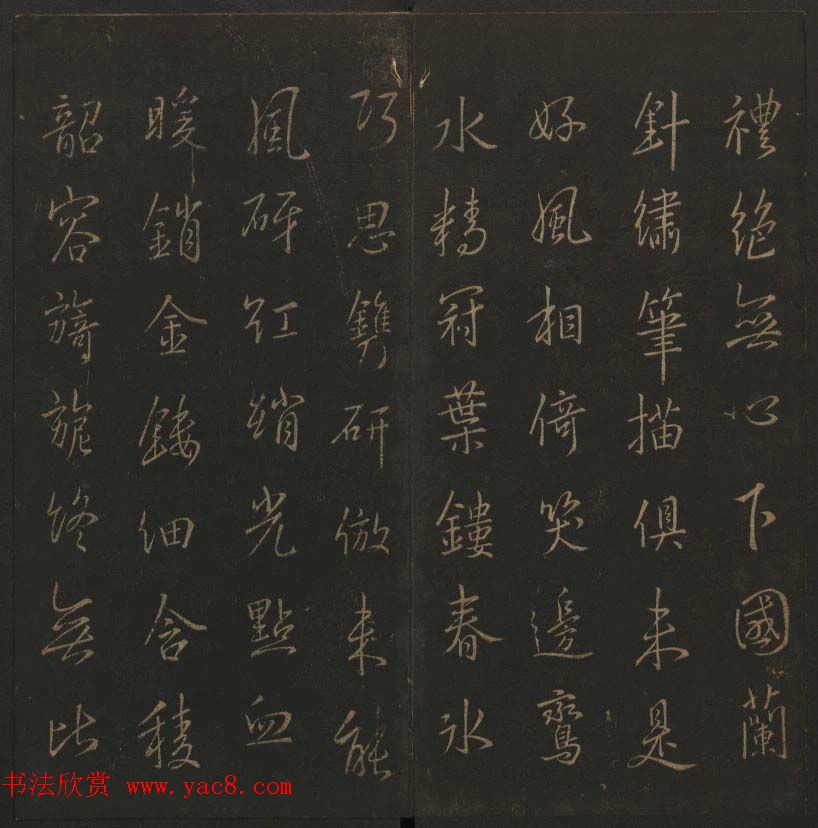 禮絕無心下國蘭
針繡筆描俱未是
好風相倚笑邊鸞
水精冠葉鏤春冰
巧思鐫研倣未能
風砑紅綃光點血
暖銷金鏤細含稜
韶容旖旎終無比
书法欣赏 www.yac8.com